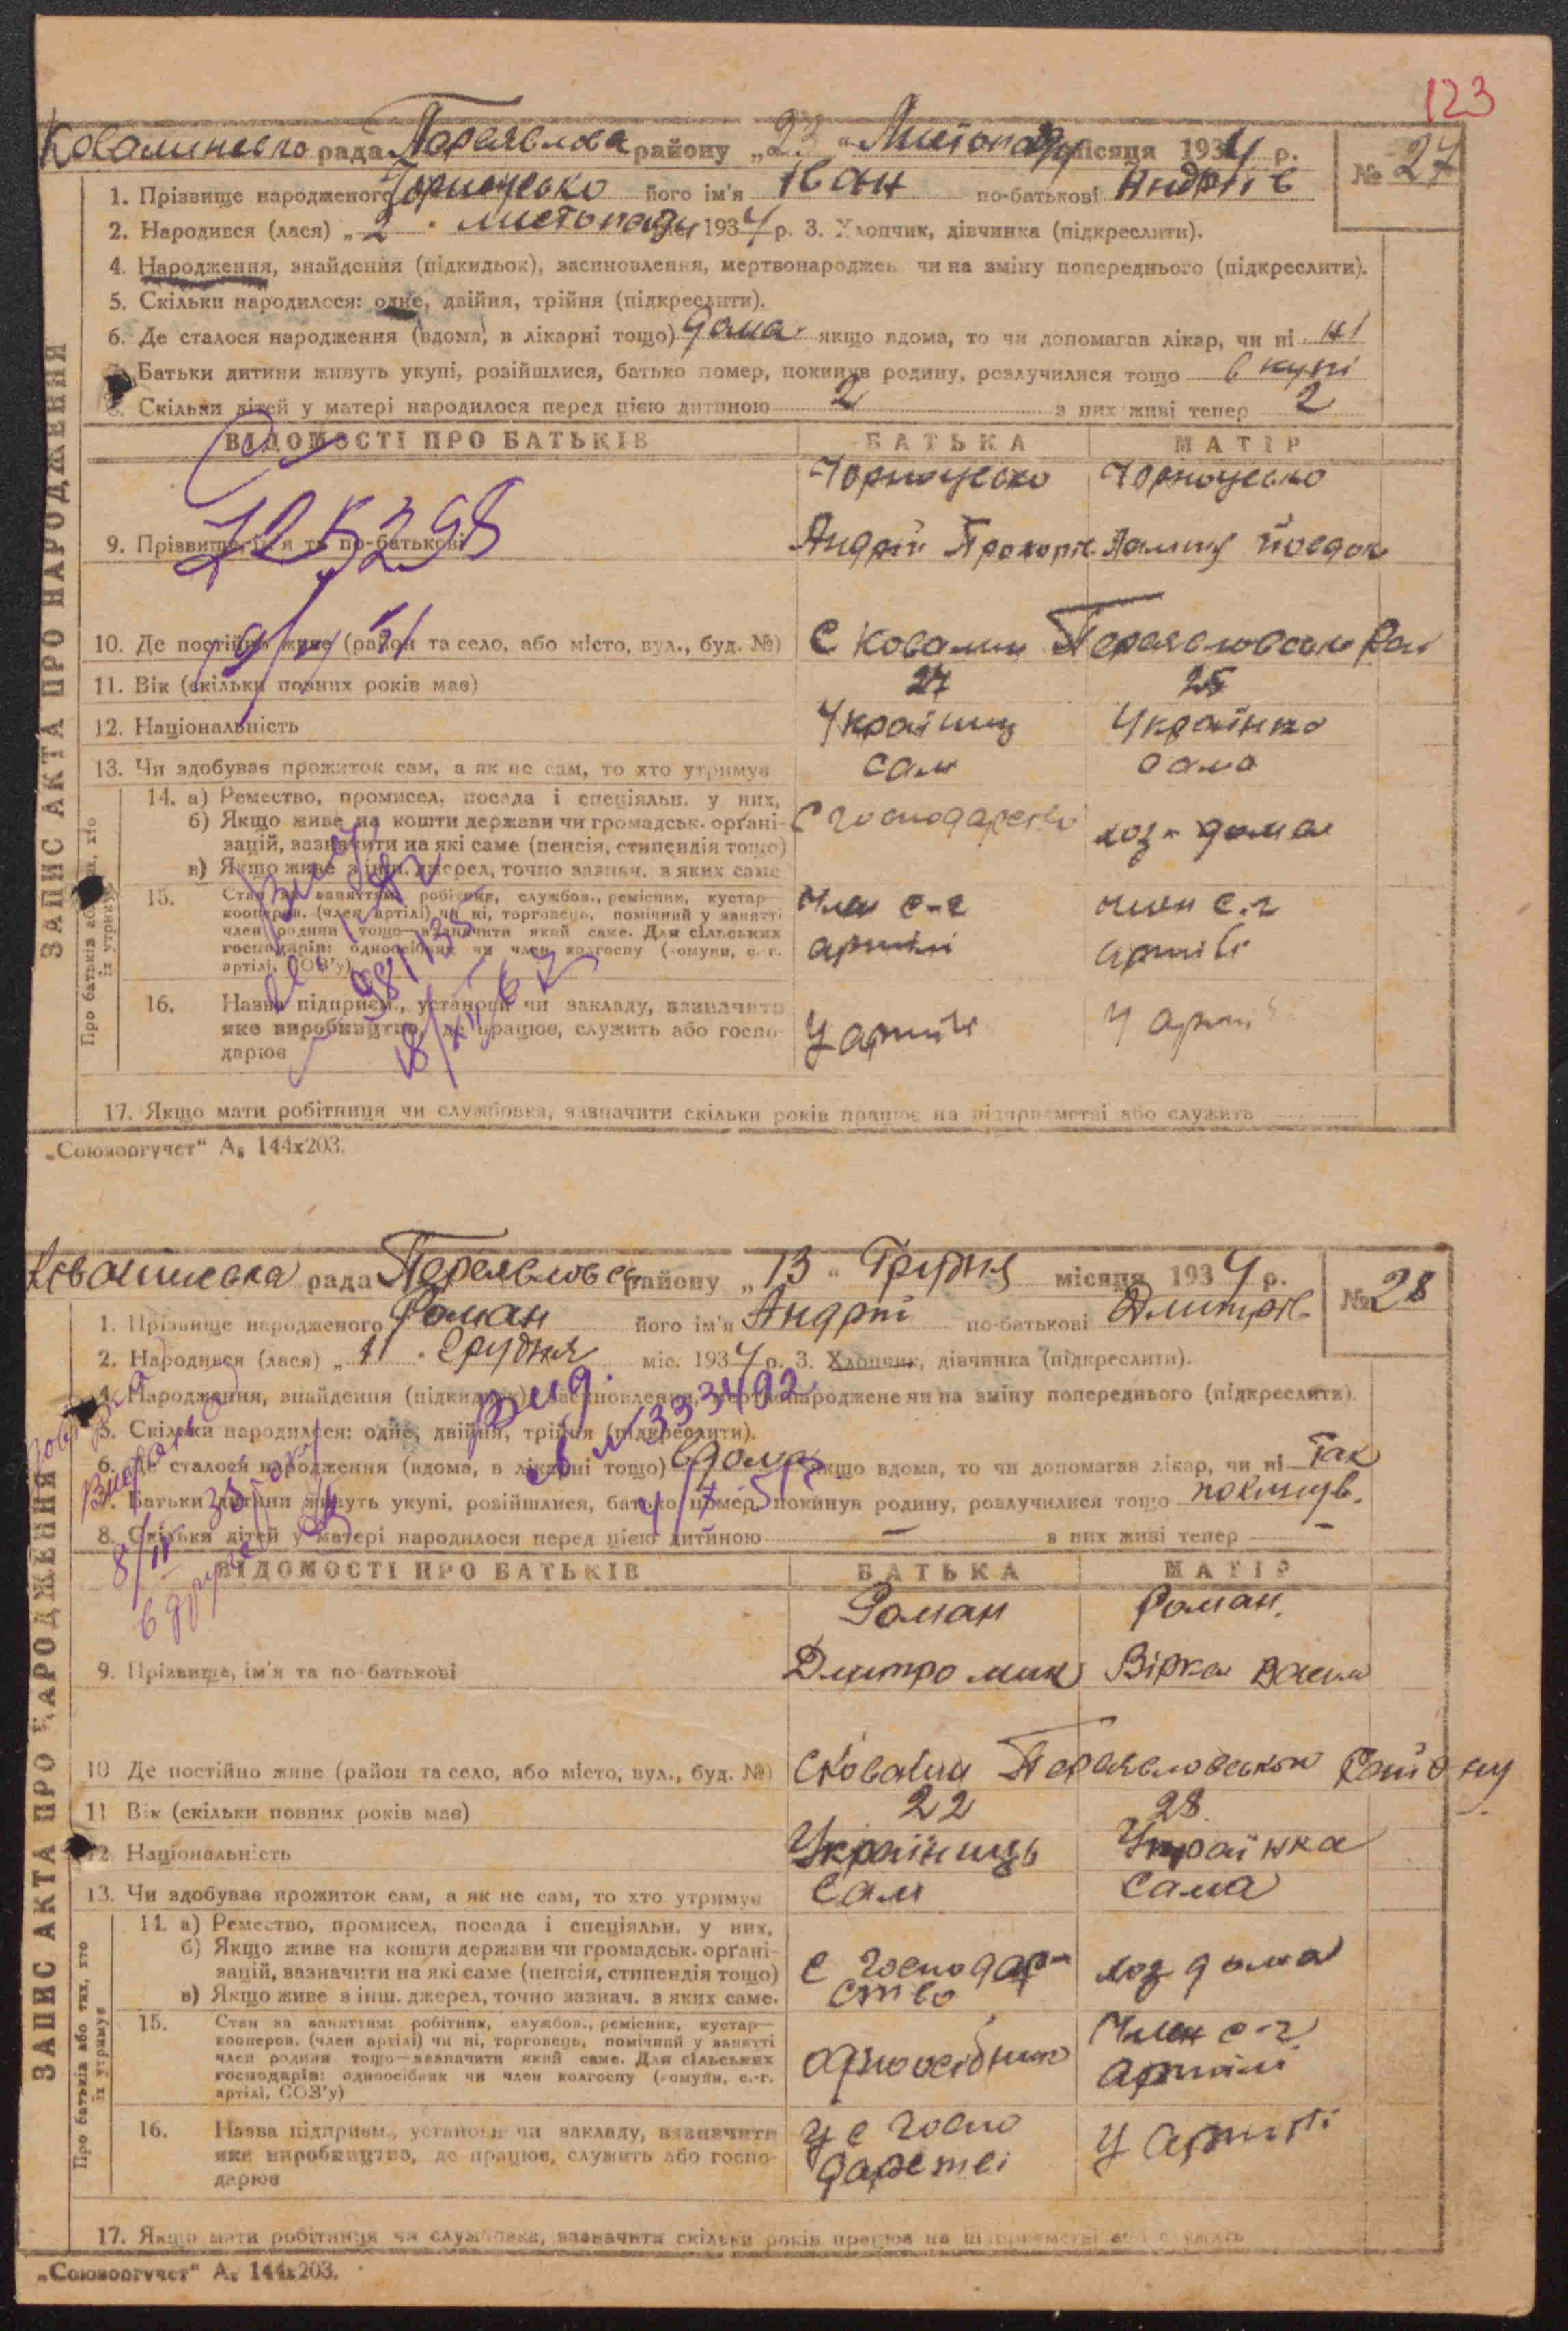 123
Ковалинсько рада Переяслова району „23“ Листопаду місяця 1934 р.
№ 27
1. Прізвище народженого його ім'я Іван по-батькові Андріїв
2. Народився (лася) „2“ листопаду 1934 р. 3. Хлопчик, дівчинка (підкреслити).
4. Народження, знайдення (підкидьок), засиновлення, мертвонароджен чи на зміну попереднього (підкреслити).
5. Скільки народилося: одне, двійня, трійня (підкреслити).
6. Де сталося народження (вдома, в лікарні тощо) дома якщо вдома, то чи допомагав лікар, чи ні ні
7. Батьки дитини живуть укупі, розійшлися, батько помер, покинув родину, розлучилися тощо в купі
8. Скільки дітей у матері народилося перед цією дитиною 2 з них живі тепер 2
ВІДОМОСТІ ПРО БАТЬКІВ БАТЬКА МАТІР
9. Прізвище, ім'я та по-батькові
Андрій Прокопів
10. Де постійно живе (район та село, або місто, вул., буд. №) С Ковалин Переясловсько Рай
11. Вік (скільки повних років має) 27 25
12. Національність Українец Українка
13. Чи здобуває прожиток сам, а як не сам, то хто утримує сам сама
14. а) Ремество, промисел, посада і спеціяльн. у них,
б) Якщо живе на кошти держави чи громадськ. органі-
зацій, зазначити на які саме (пенсія, стипендія тощо)
в) Якщо живе з інш. джерел, точно зазнач. з яких саме
С господарство хоз. дома
15. Стан за заняттям: робітник, службов., ремісник, кустар—
кооперов. (член артілі) чи ні, торговець, помічний у занятті
член родини тощо—зазначити який саме. Для сільських
господарів: одноосібник чи член колгоспу (комуни, с.-г.
артілі, СОЗ'у)
Член с-г член с.-г
артілі артілі
16. Назва підприєм., установи чи закладу, зазначити
яке виробництво, де працює, служить або госпо-
дарює
У артілі У арті
17. Якщо мати робітниця чи службовка, зазначити скільки років працює на підприємстві або служить
ЗАПИС АКТА ПРО НАРОДЖЕННЯ
Про батьків або тих, хто
їх утримує
„Союзоргучет“ А₅ 144х203.
Ковалинська рада Переясловсь району „13“ Грудня місяця 1934 р.
№ 28
1. Прізвище народженого Роман його ім'я Андрій по-батькові Дмитрів
2. Народився (лася) „11“ Грудня міс. 1934 р. 3. Хлопчик, дівчинка (підкреслити).
4. Народження, знайдення (підкидьок), засиновлення, мертвонароджене чи на зміну попереднього (підкреслити).
5. Скільки народилося: одне, двійня, трійня (підкреслити).
6. Де сталося народження (вдома, в лікарні тощо) вдома якщо вдома, то чи допомагав лікар, чи ні Так
7. Батьки дитини живуть укупі, розійшлися, батько помер, покинув родину, розлучилися тощо покинув.
8. Скільки дітей у матері народилося перед цією дитиною — з них живі тепер —
ВІДОМОСТІ ПРО БАТЬКІВ БАТЬКА МАТІР
Роман Роман
9. Прізвище, ім'я та по-батькові Дмитро Мик Вірка Васил
10 Де постійно живе (район та село, або місто, вул., буд. №) с Ковалин Переясловськом Району
11 Вік (скільки повних років має) 22 28
12. Національність Українець Українка
13. Чи здобуває прожиток сам, а як не сам, то хто утримує Сам Сама
14. а) Ремество, промисел, посада і спеціяльн. у них,
б) Якщо живе на кошти держави чи громадськ. органі-
зацій, зазначити на які саме (пенсія, стипендія тощо)
в) Якщо живе з інш. джерел, точно зазнач. з яких саме.
С господар- хоз дома
ство
15. Стан за заняттям: робітник, службов., ремісник, кустар—
кооперов. (член артілі) чи ні, торговець, помічний у занятті
член родини тощо—зазначити який саме. Для сільських
господарів: одноосібник чи член колгоспу (комуни, с.-г.
артілі, СОЗ'у)
одноосібник Член с-г
артілі
16. Назва підприєм., установи чи закладу, зазначити
яке виробництво, де працює, служить або госпо-
дарює
у с госпо У артілі
дарстві
17. Якщо мати робітниця чи службовка, зазначити скільки років працює на підприємстві або служить
ЗАПИС АКТА ПРО НАРОДЖЕННЯ
Про батьків або тих, хто
їх утримує
„Союзоргучет“ А₅ 144х203.